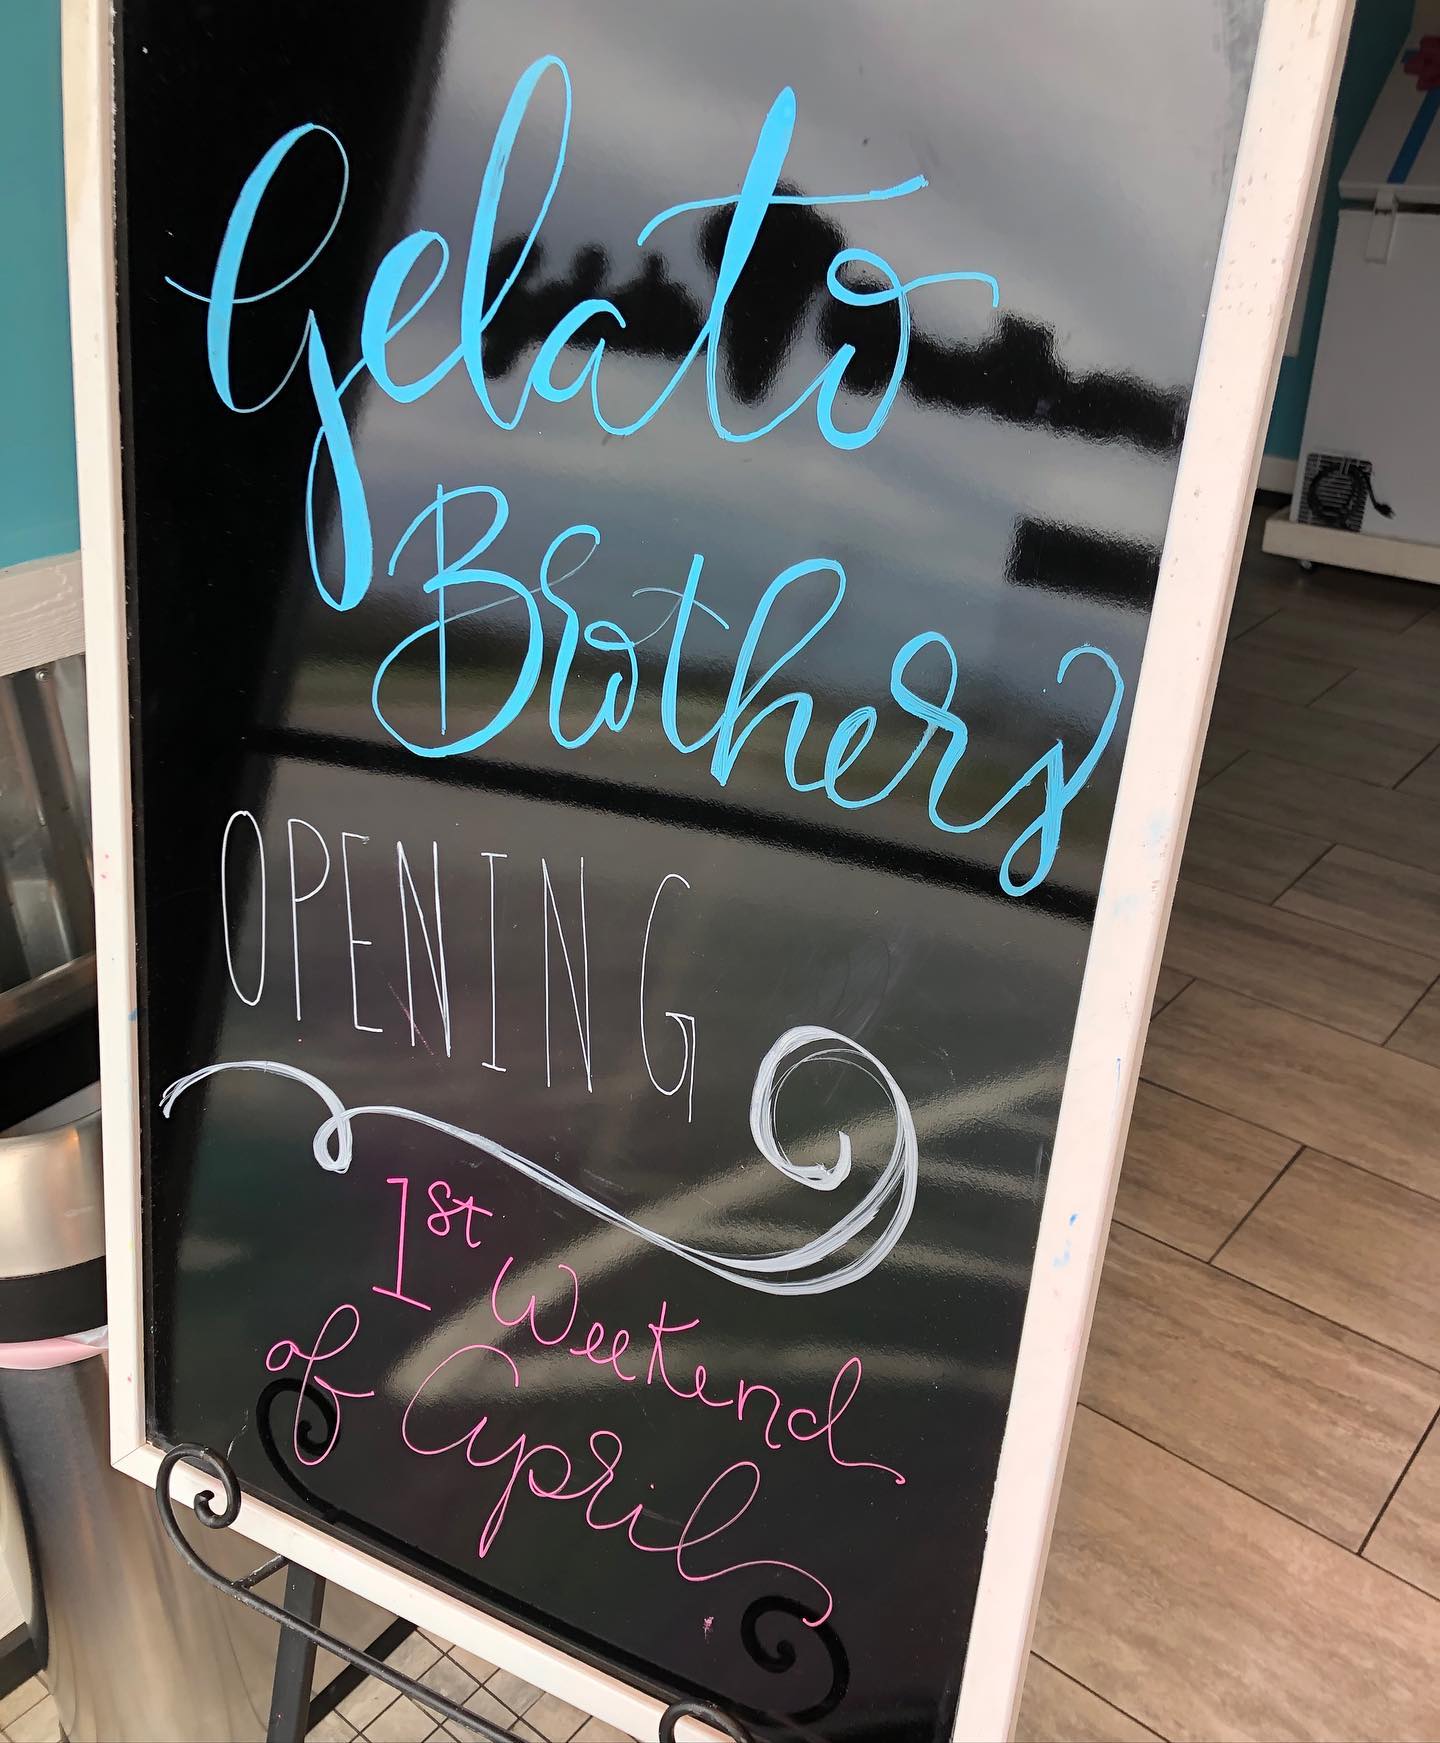 Gelato
Brothers
OPENING
1st Weekend
of April